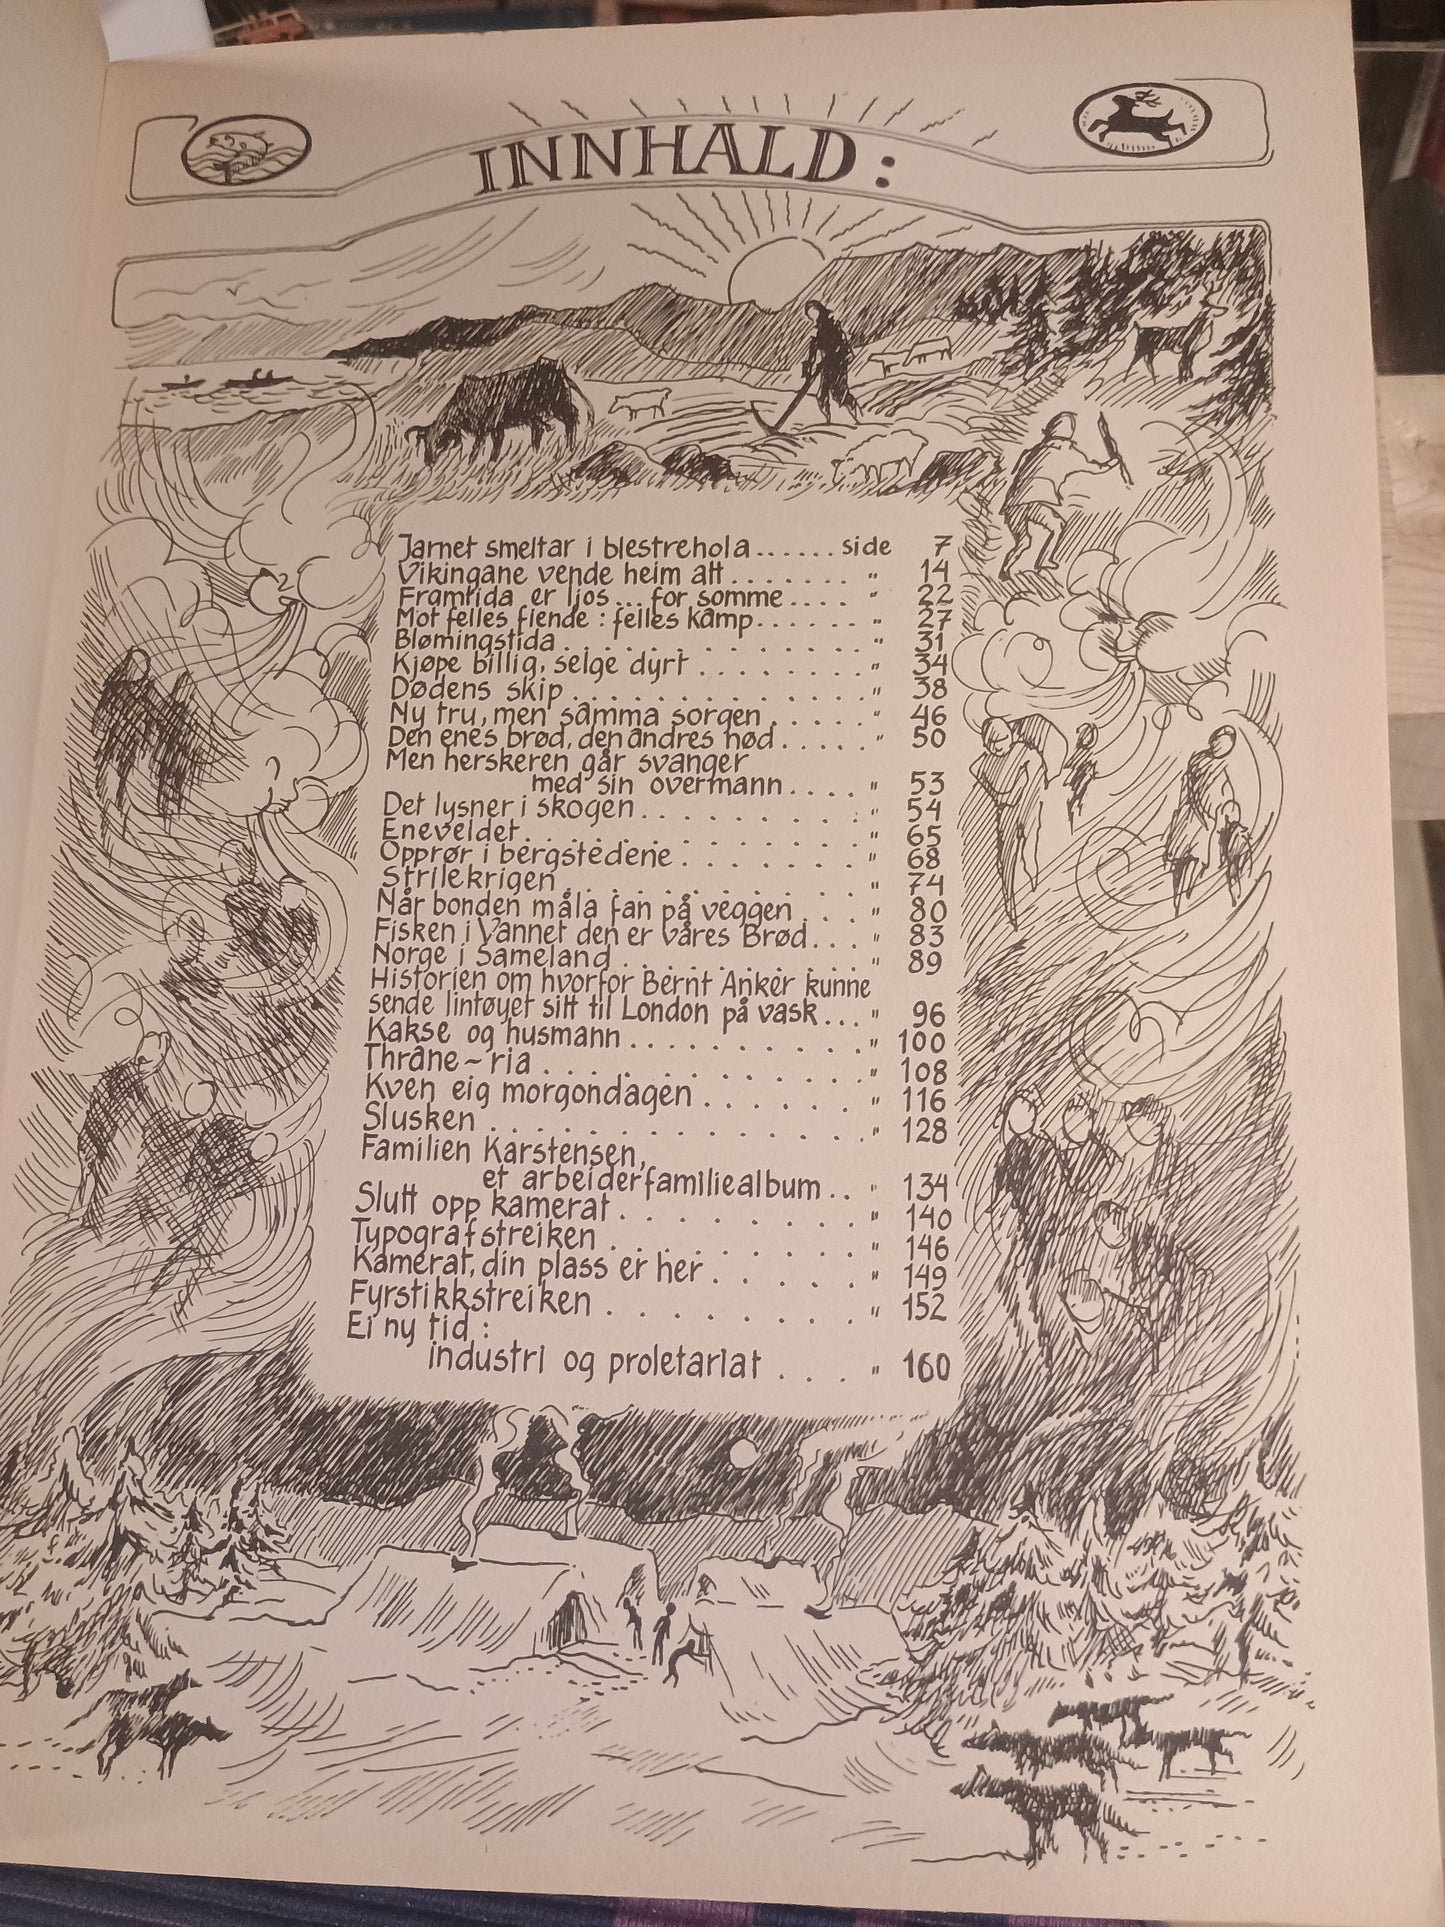 INNHALD:
Jarnet smeltar i blestrehola......side 7
Vikingane vende heim att......." 14
Framtida er ljos...for somme...." 22
Mot felles fiende : felles kamp......" 27
Blømingstida.............." 31
Kjøpe billig, selge dyrt........" 34
Dødens skip.............." 38
Ny tru, men samma sorgen......" 46
Den enes brød, den andres nød....." 50
Men herskeren går svanger
med sin overmann...." 53
Det lysner i skogen.........." 54
Eneveldet.............." 65
Opprør i bergstedene........" 68
Strilekrigen............" 74
Når bonden måla fan på veggen..." 80
Fisken i Vannet den er våres Brød..." 83
Norge i Sameland.........." 89
Historien om hvorfor Bernt Anker kunne
sende lintøyet sitt til London på vask..." 96
Kakse og husmann.........." 100
Thrane-ria............." 108
Kven eig morgondagen......." 116
Slusken................" 128
Familien Karstensen,
et arbeiderfamiliealbum.." 134
Slutt opp kamerat........." 140
Typografstreiken........." 146
Kamerat, din plass er her....." 149
Fyrstikkstreiken........." 152
Ei ny tid :
industri og proletariat..." 160